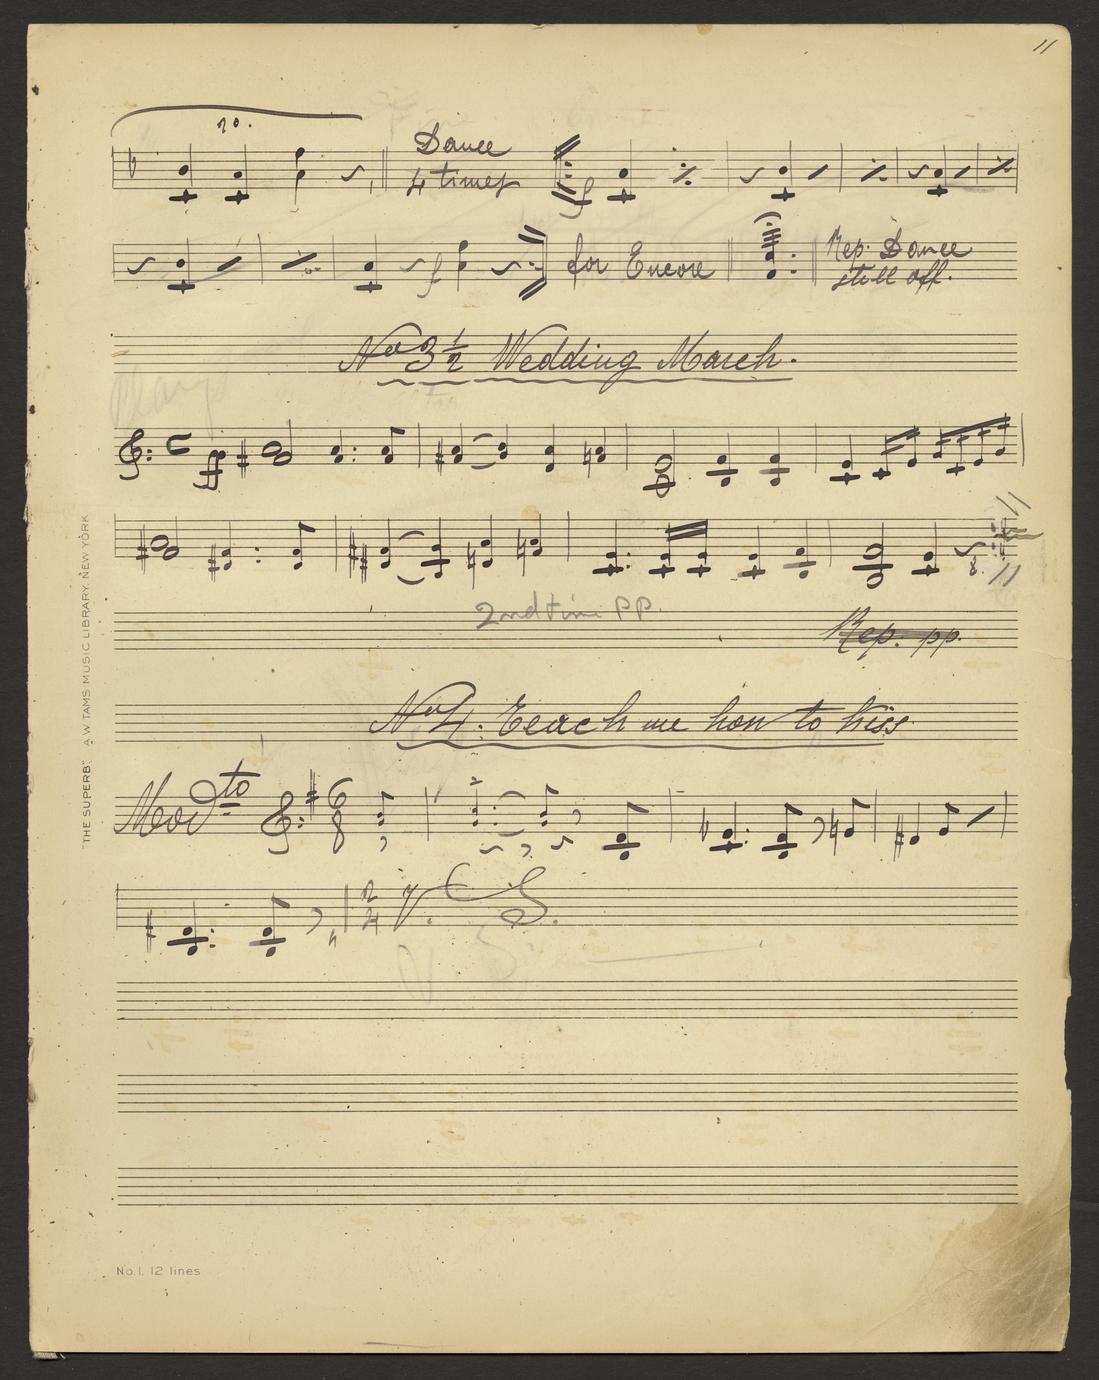 11
20.
Dance
4 times
f
f
for Encore
Rep. Dance
still off.
No 3 1/2 Wedding March.
ff
2nd time PP.
Rep. pp.
No 4. Teach me how to kiss
Modto
6
8
2
4
V. S.
"THE SUPERB" A.W. TAMS MUSIC LIBRARY. NEW YORK
No.1. 12 lines